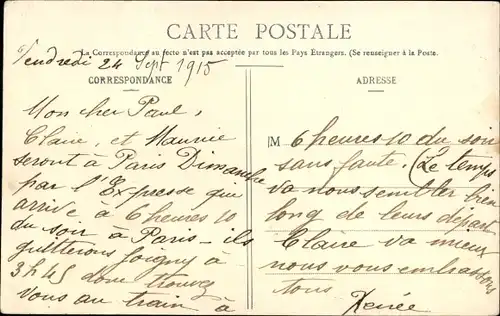 CARTE POSTALE
La Correspondance au recto n'est pas acceptée par tous les Pays Etrangers. (Se renseigner à la Poste.
Vendredi 24 Sept 1915
CORRESPONDANCE
Mon cher Paul,
Claire, et Maurice
seront à Paris Dimanche
par l'Express que
arrive à 6 heures 10
du soir à Paris - ils
quitterons Joigny à
3h45 donc trouvez
vous au train à
ADRESSE
M 6 heures 10 du soir
sans faute. (Le temps
va nous sembler bien
long de leurs départ
Claire va mieux
nous vous embrassons
tous
Renée